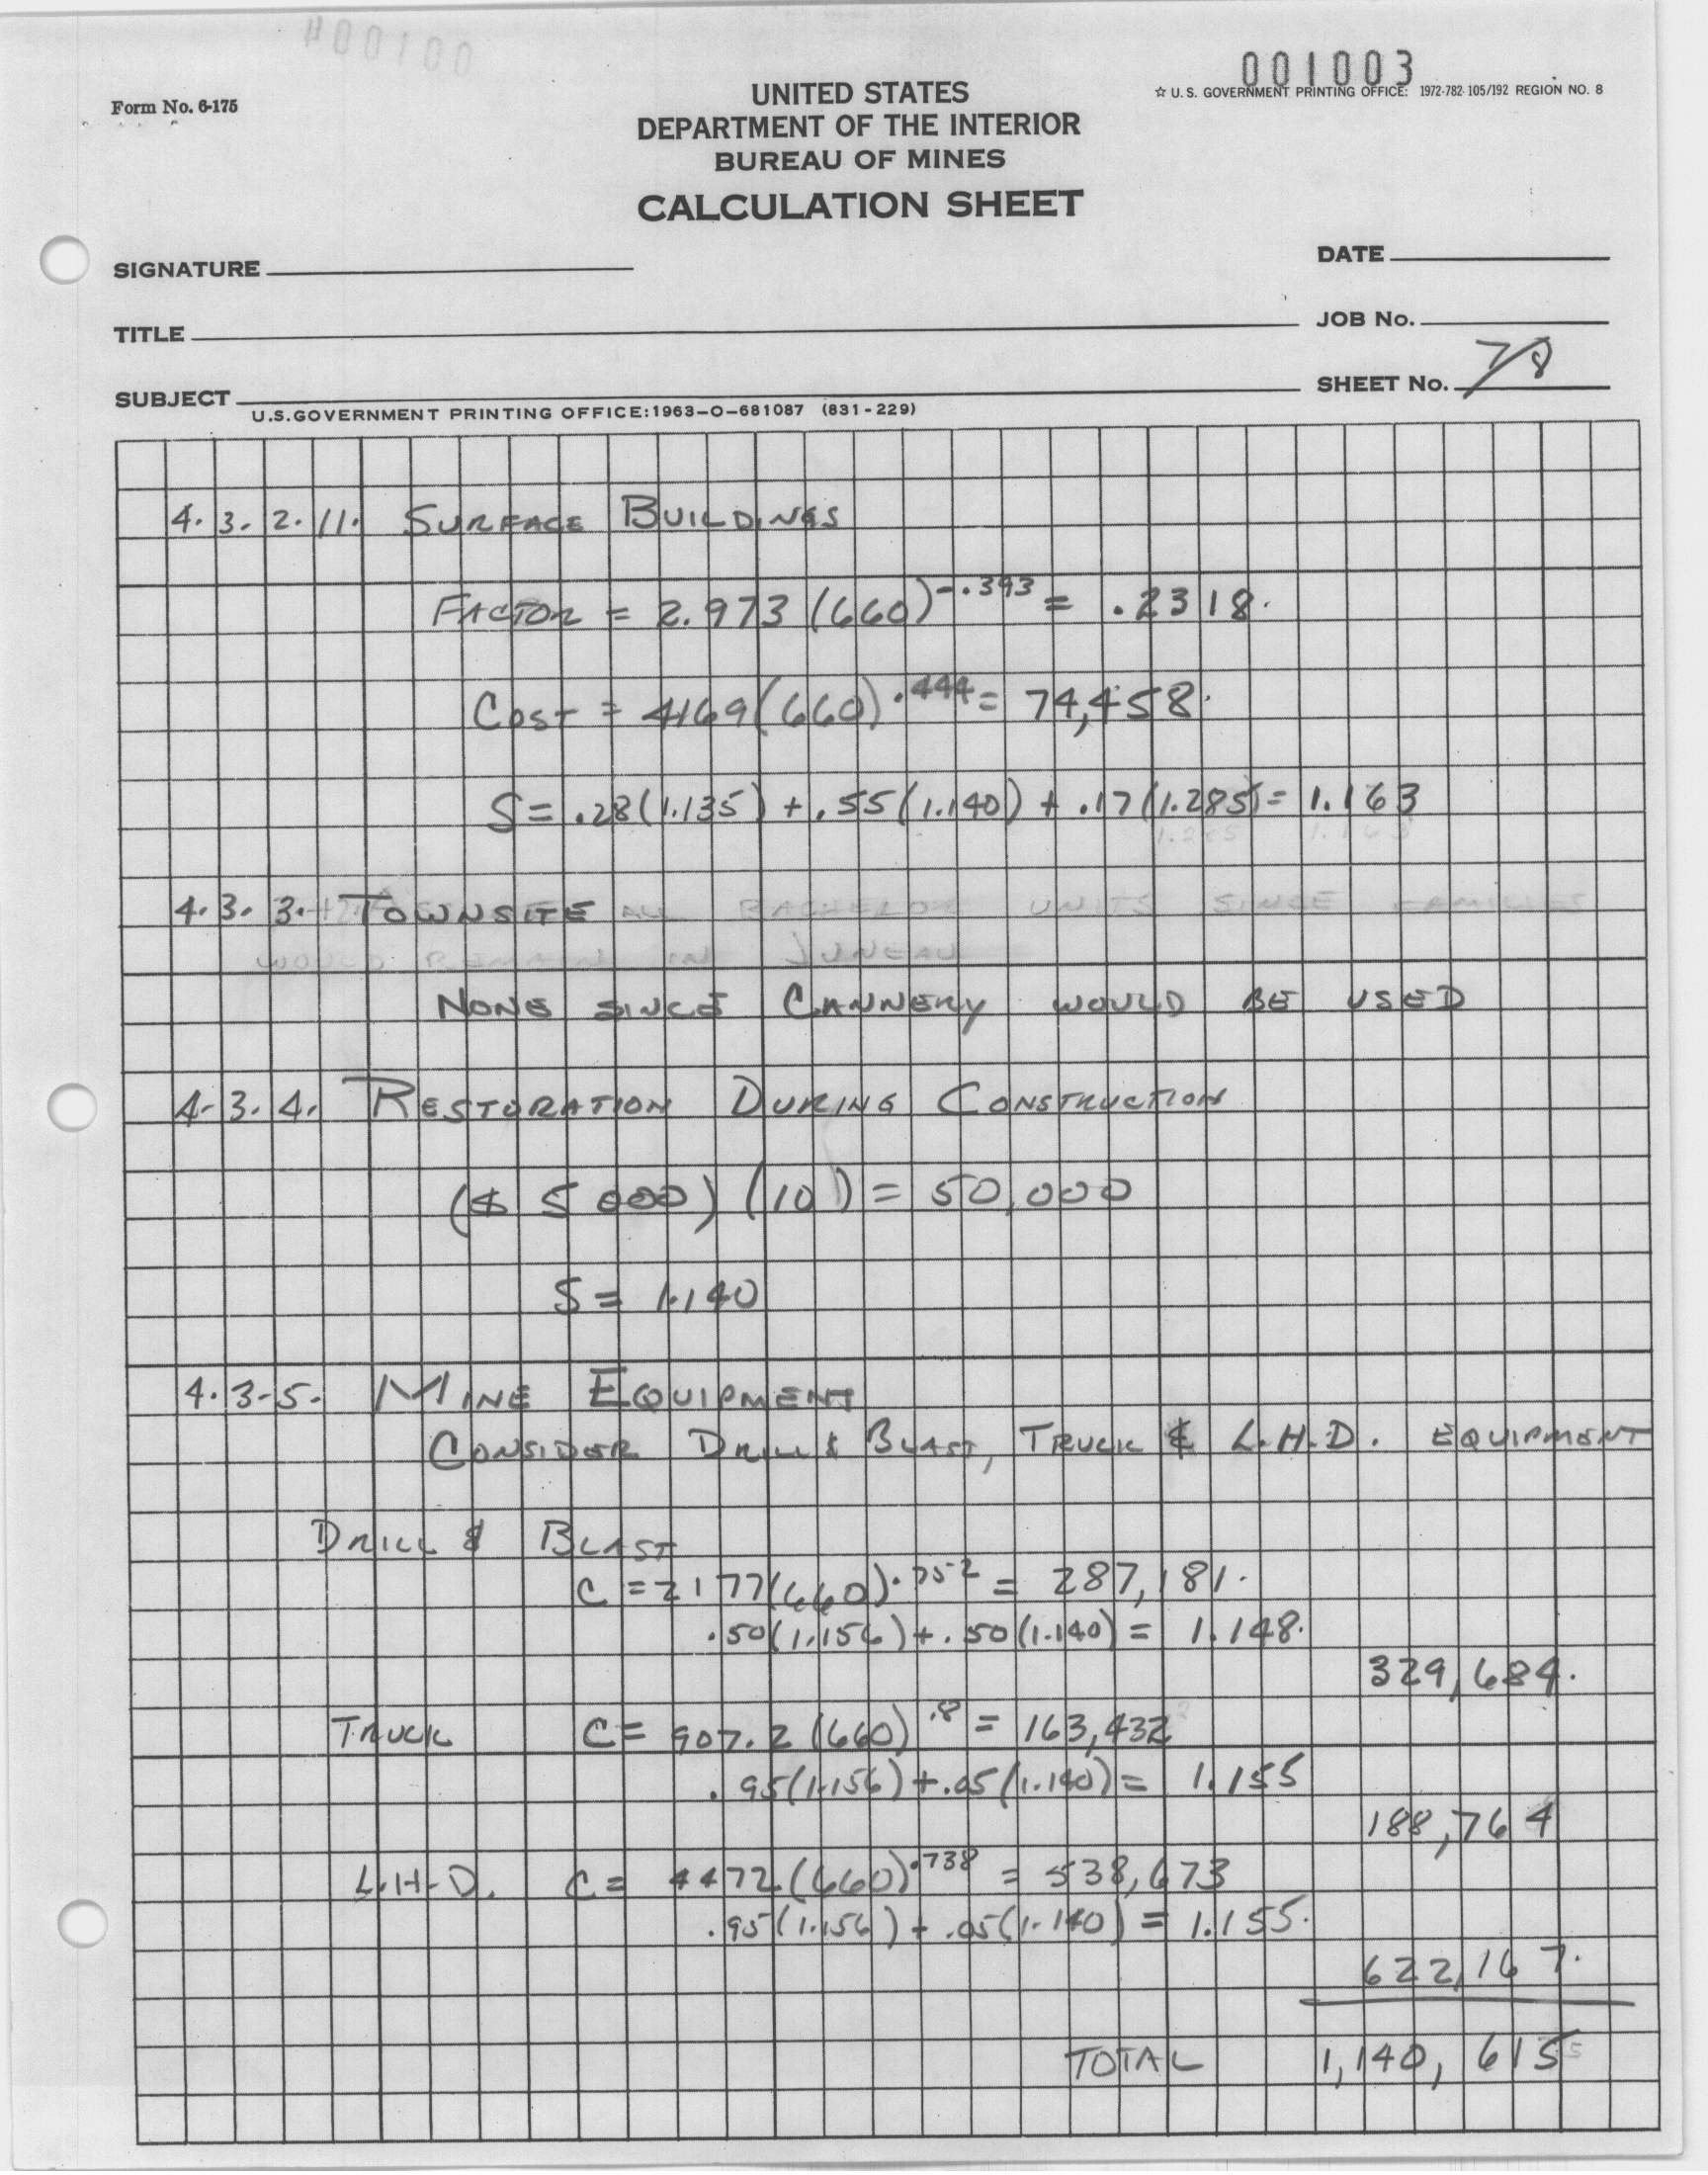 001004
001003
Form No. 6-175
☆ U.S. GOVERNMENT PRINTING OFFICE: 1972-782-105/192 REGION NO. 8
UNITED STATES
DEPARTMENT OF THE INTERIOR
BUREAU OF MINES
CALCULATION SHEET
SIGNATURE
DATE
TITLE
JOB No.
SUBJECT
SHEET No. 7/8
U.S.GOVERNMENT PRINTING OFFICE:1963-O-681087 (831-229)
4.3.2.11. SURFACE BUILDINGS
FACTOR = 2.973 (660)^-.393 = .2318.
COST = 4169(660)^.444 = 74,458.
S = .28(1.135) + .55(1.140) + .17(1.285) = 1.163
1.285 1.163
4.3.3. TOWNSITE ALL BACHELOR UNITS SINCE FAMILIES
WOULD REMAIN IN JUNEAU
NONE SINCE CANNERY WOULD BE USED
4-3.4. RESTORATION DURING CONSTRUCTION
($ 5000) (10) = 50,000
S = 1.140
4.3-5. MINE EQUIPMENT
CONSIDER DRILL & BLAST, TRUCK & L.H.D. EQUIPMENT
DRILL & BLAST
C = 2177(660)^.752 = 287,181.
.50(1.156) + .50(1.140) = 1.148.
329,684.
TRUCK C = 907.2 (660)^.8 = 163,432
.95(1.156) + .05(1.140) = 1.155
188,764
L.H-D. C = 4472(660)^.738 = 538,673
.95(1.156) + .05(1.140) = 1.155.
622,167.
TOTAL 1,140,615